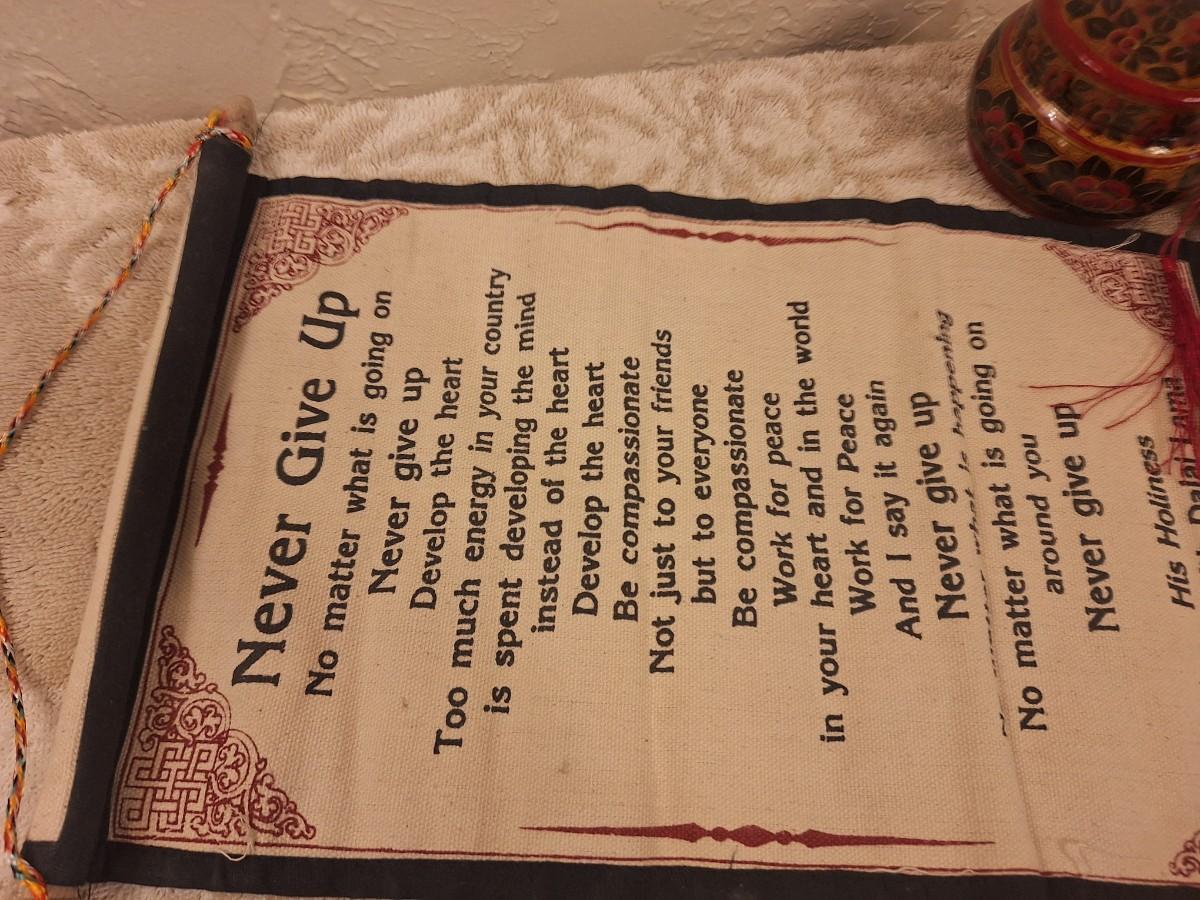 Never Give Up
No matter what is going on
Never give up
Develop the heart
Too much energy in your country
is spent developing the mind
instead of the heart
Develop the heart
Be compassionate
Not just to your friends
but to everyone
Be compassionate
Work for peace
in your heart and in the world
Work for Peace
And I say it again
Never give up
what is happening
No matter what is going on
around you
Never give up
His Holiness
Dalai Lama